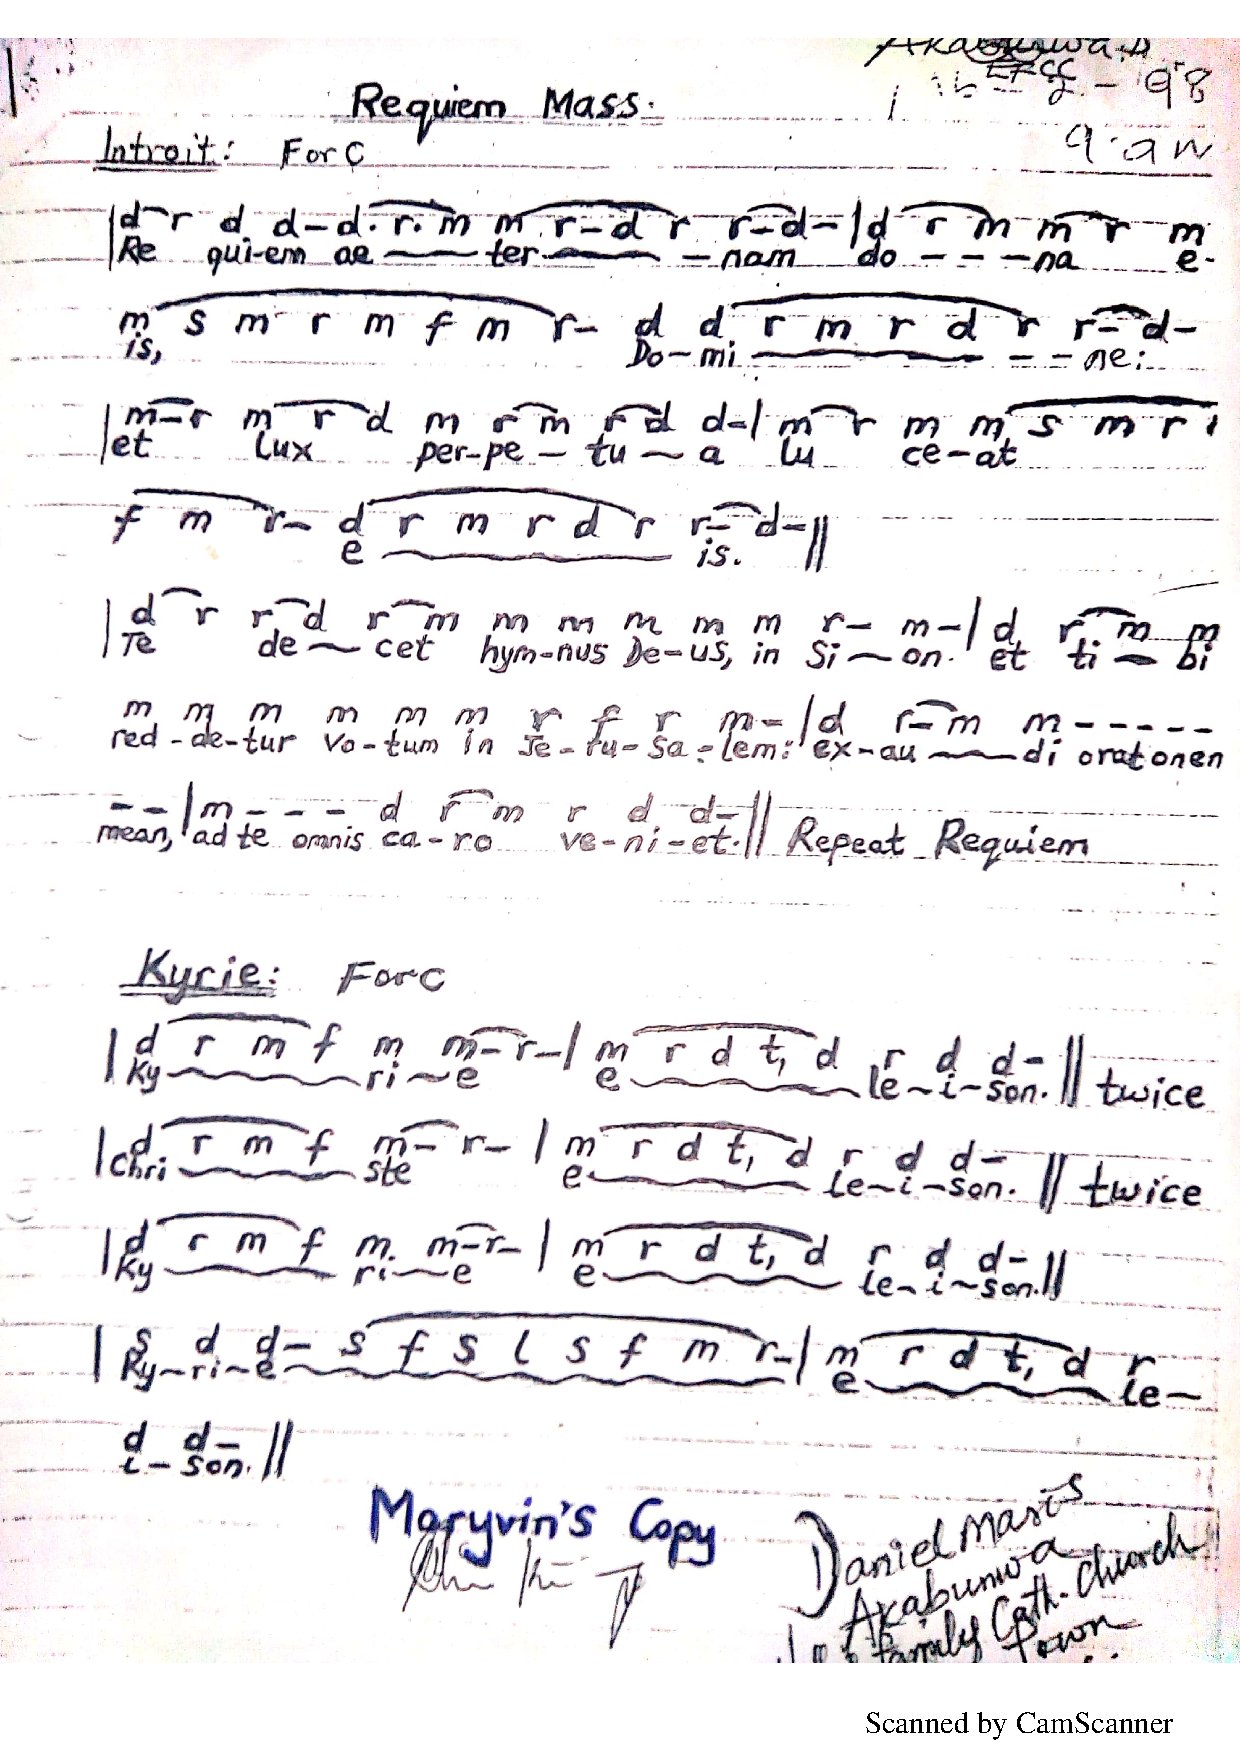 Akabunwa.D
EFCC
16 - 8 - 98
9.am
Requiem Mass.
Introit: F or C
|d r d d-d.r.m m r-d r r-d-|d r m m r m
Re qui-em ae ter - nam do - - - na e-
m s m r m f m r- d d r m r d r r-d-
is, Do-mi - - ne:
|m-r m r d m r m r d d-|m r m m s m r
et Lux per-pe - tu ~ a lu ce-at
f m r- d r m r d r r-d-||
e is.
|d r r d r m m m m m m r- m-|d r m m
Te de ~ cet hym-nus De-us, in Si ~ on. et ti - bi
m m m m m m r f r m-|d r-m m - - - - -
red-de-tur vo-tum in Je-ru-sa-lem: ex-au di oratonen
- -|m - - - d r m r d d-||
mean, ad te omnis ca-ro ve-ni-et.|| Repeat Requiem
Kyrie: F or C
|d r m f m m-r-|m r d t, d r d d-||
Ky ri~e e le~i~son. || twice
|d r m f m-r-|m r d t, d r d d-
Chri ste e le~i-son. || twice
|d r m f m m-r-|m r d t, d r d d-
Ky ri~e e le~i~son.||
|s d d- s f s l s f m r-|m r d t, d r
Ky~ri~e e le~
d d-
i-son. ||
Maryvin's Copy
Daniel Maris
Akabunwa
Family Cath. Church
Town
Scanned by CamScanner